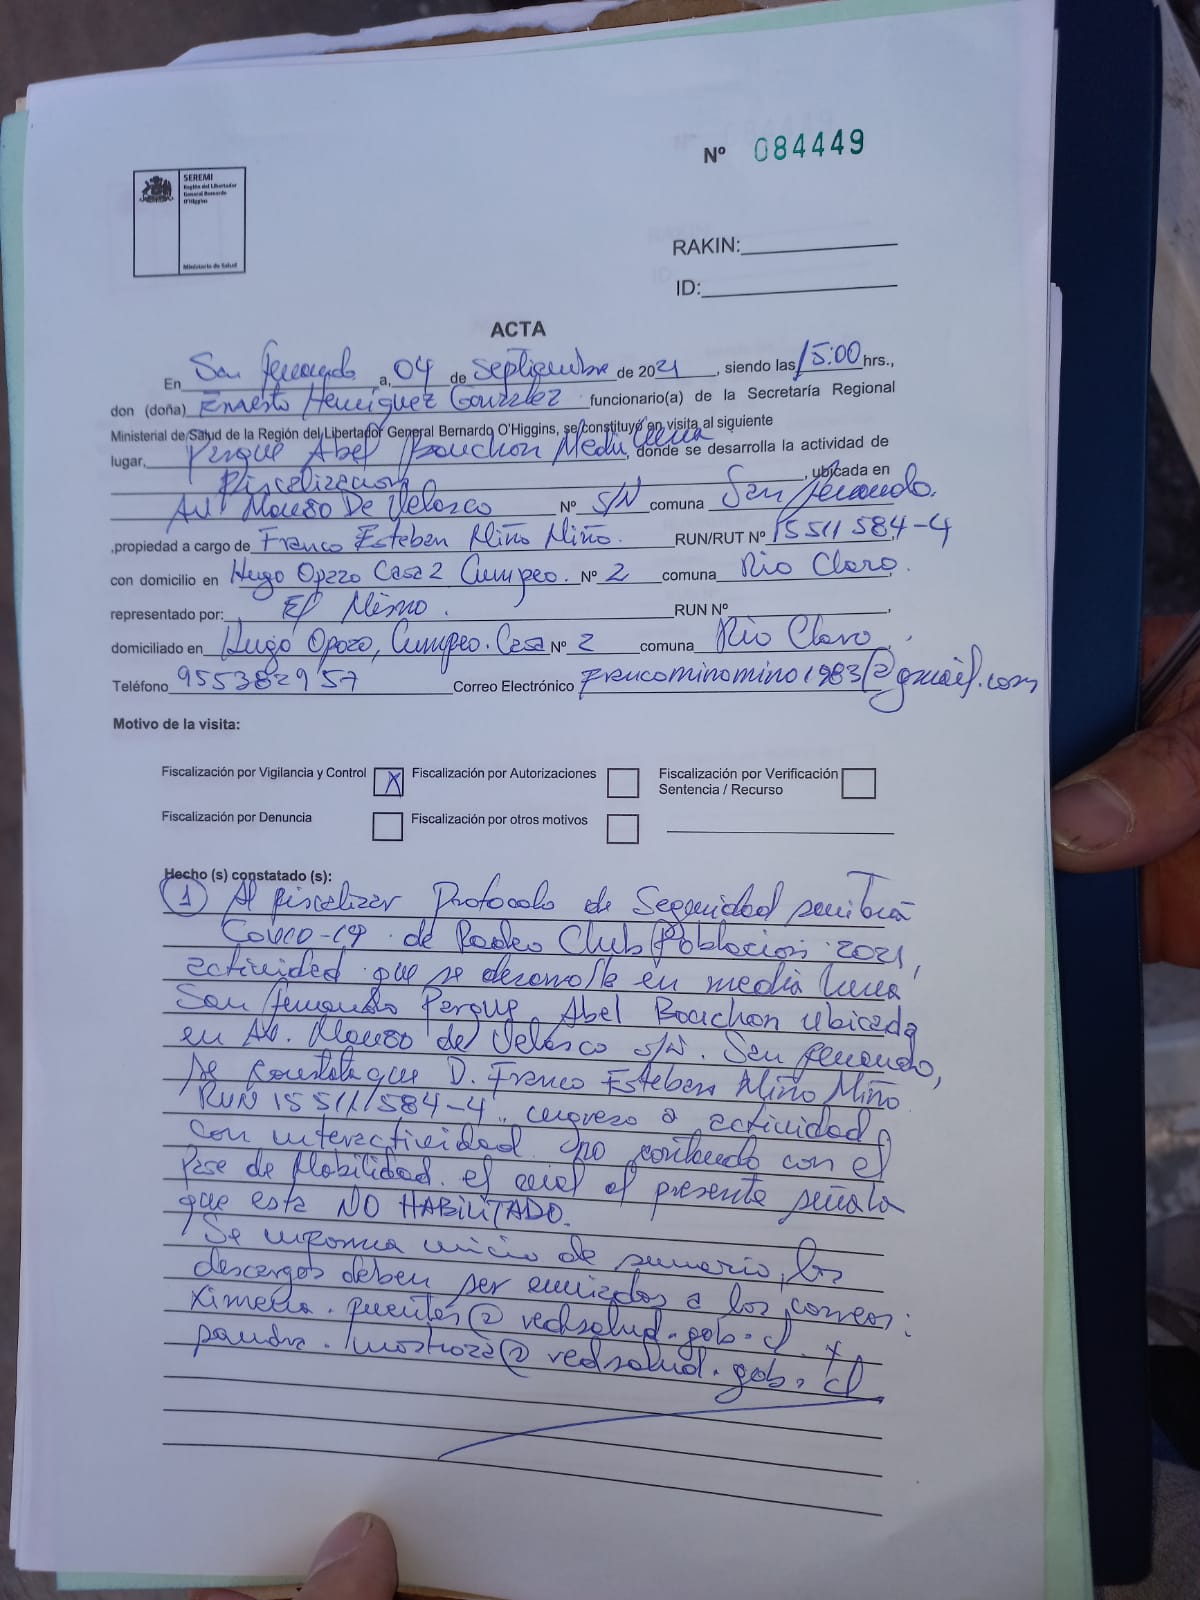 Nº 084449
SEREMI
Región del Libertador
General Bernardo
O'Higgins
Ministerio de Salud
RAKIN:
ID:
ACTA
En San Fernando a, 04 de Septiembre de 2021, siendo las 15:00 hrs.,
don (doña) Ernesto Henriquez Gonzalez funcionario(a) de la Secretaría Regional
Ministerial de Salud de la Región del Libertador General Bernardo O'Higgins, se constituyó en visita al siguiente
lugar, Parque Abel Bouchon Media Luna, donde se desarrolla la actividad de
Fiscalizacion, ubicada en
Av. Manso De Velasco Nº S/N comuna San Fernando.
,propiedad a cargo de Franco Esteban Miño Miño. RUN/RUT Nº 15511584-4
con domicilio en Hugo Opazo Casa 2 Cumpeo. Nº 2 comuna Rio Claro.
representado por: El Mismo. RUN Nº,
domiciliado en Hugo Opazo, Cumpeo. Casa Nº 2 comuna Rio Claro,
Teléfono 955382957 Correo Electrónico francominomino1983@gmail.com
Motivo de la visita:
Fiscalización por Vigilancia y Control X Fiscalización por Autorizaciones Fiscalización por Verificación
Sentencia / Recurso
Fiscalización por Denuncia Fiscalización por otros motivos
Hecho (s) constatado (s):
1 Al fiscalizar Protocolo de Seguridad sanitaria
Covid-19 de Rodeo Club Poblacion 2021,
actividad que se desarrolla en media luna
San Fernando Parque Abel Bouchon ubicada
en Av. Manso de Velasco S/N. San Fernando,
se constata que D. Franco Esteban Miño Miño
RUN 15511584-4, ingreso a actividad
con interactividad no contando con el
Pase de Mobilidad. el cual al presente señala
que esta NO HABILITADO.
Se informa inicio de sumario, los
descargos deben ser enviados a los correos:
Ximena.fuentes@redsalud.gob.cl y
@redsalud.gob.cl